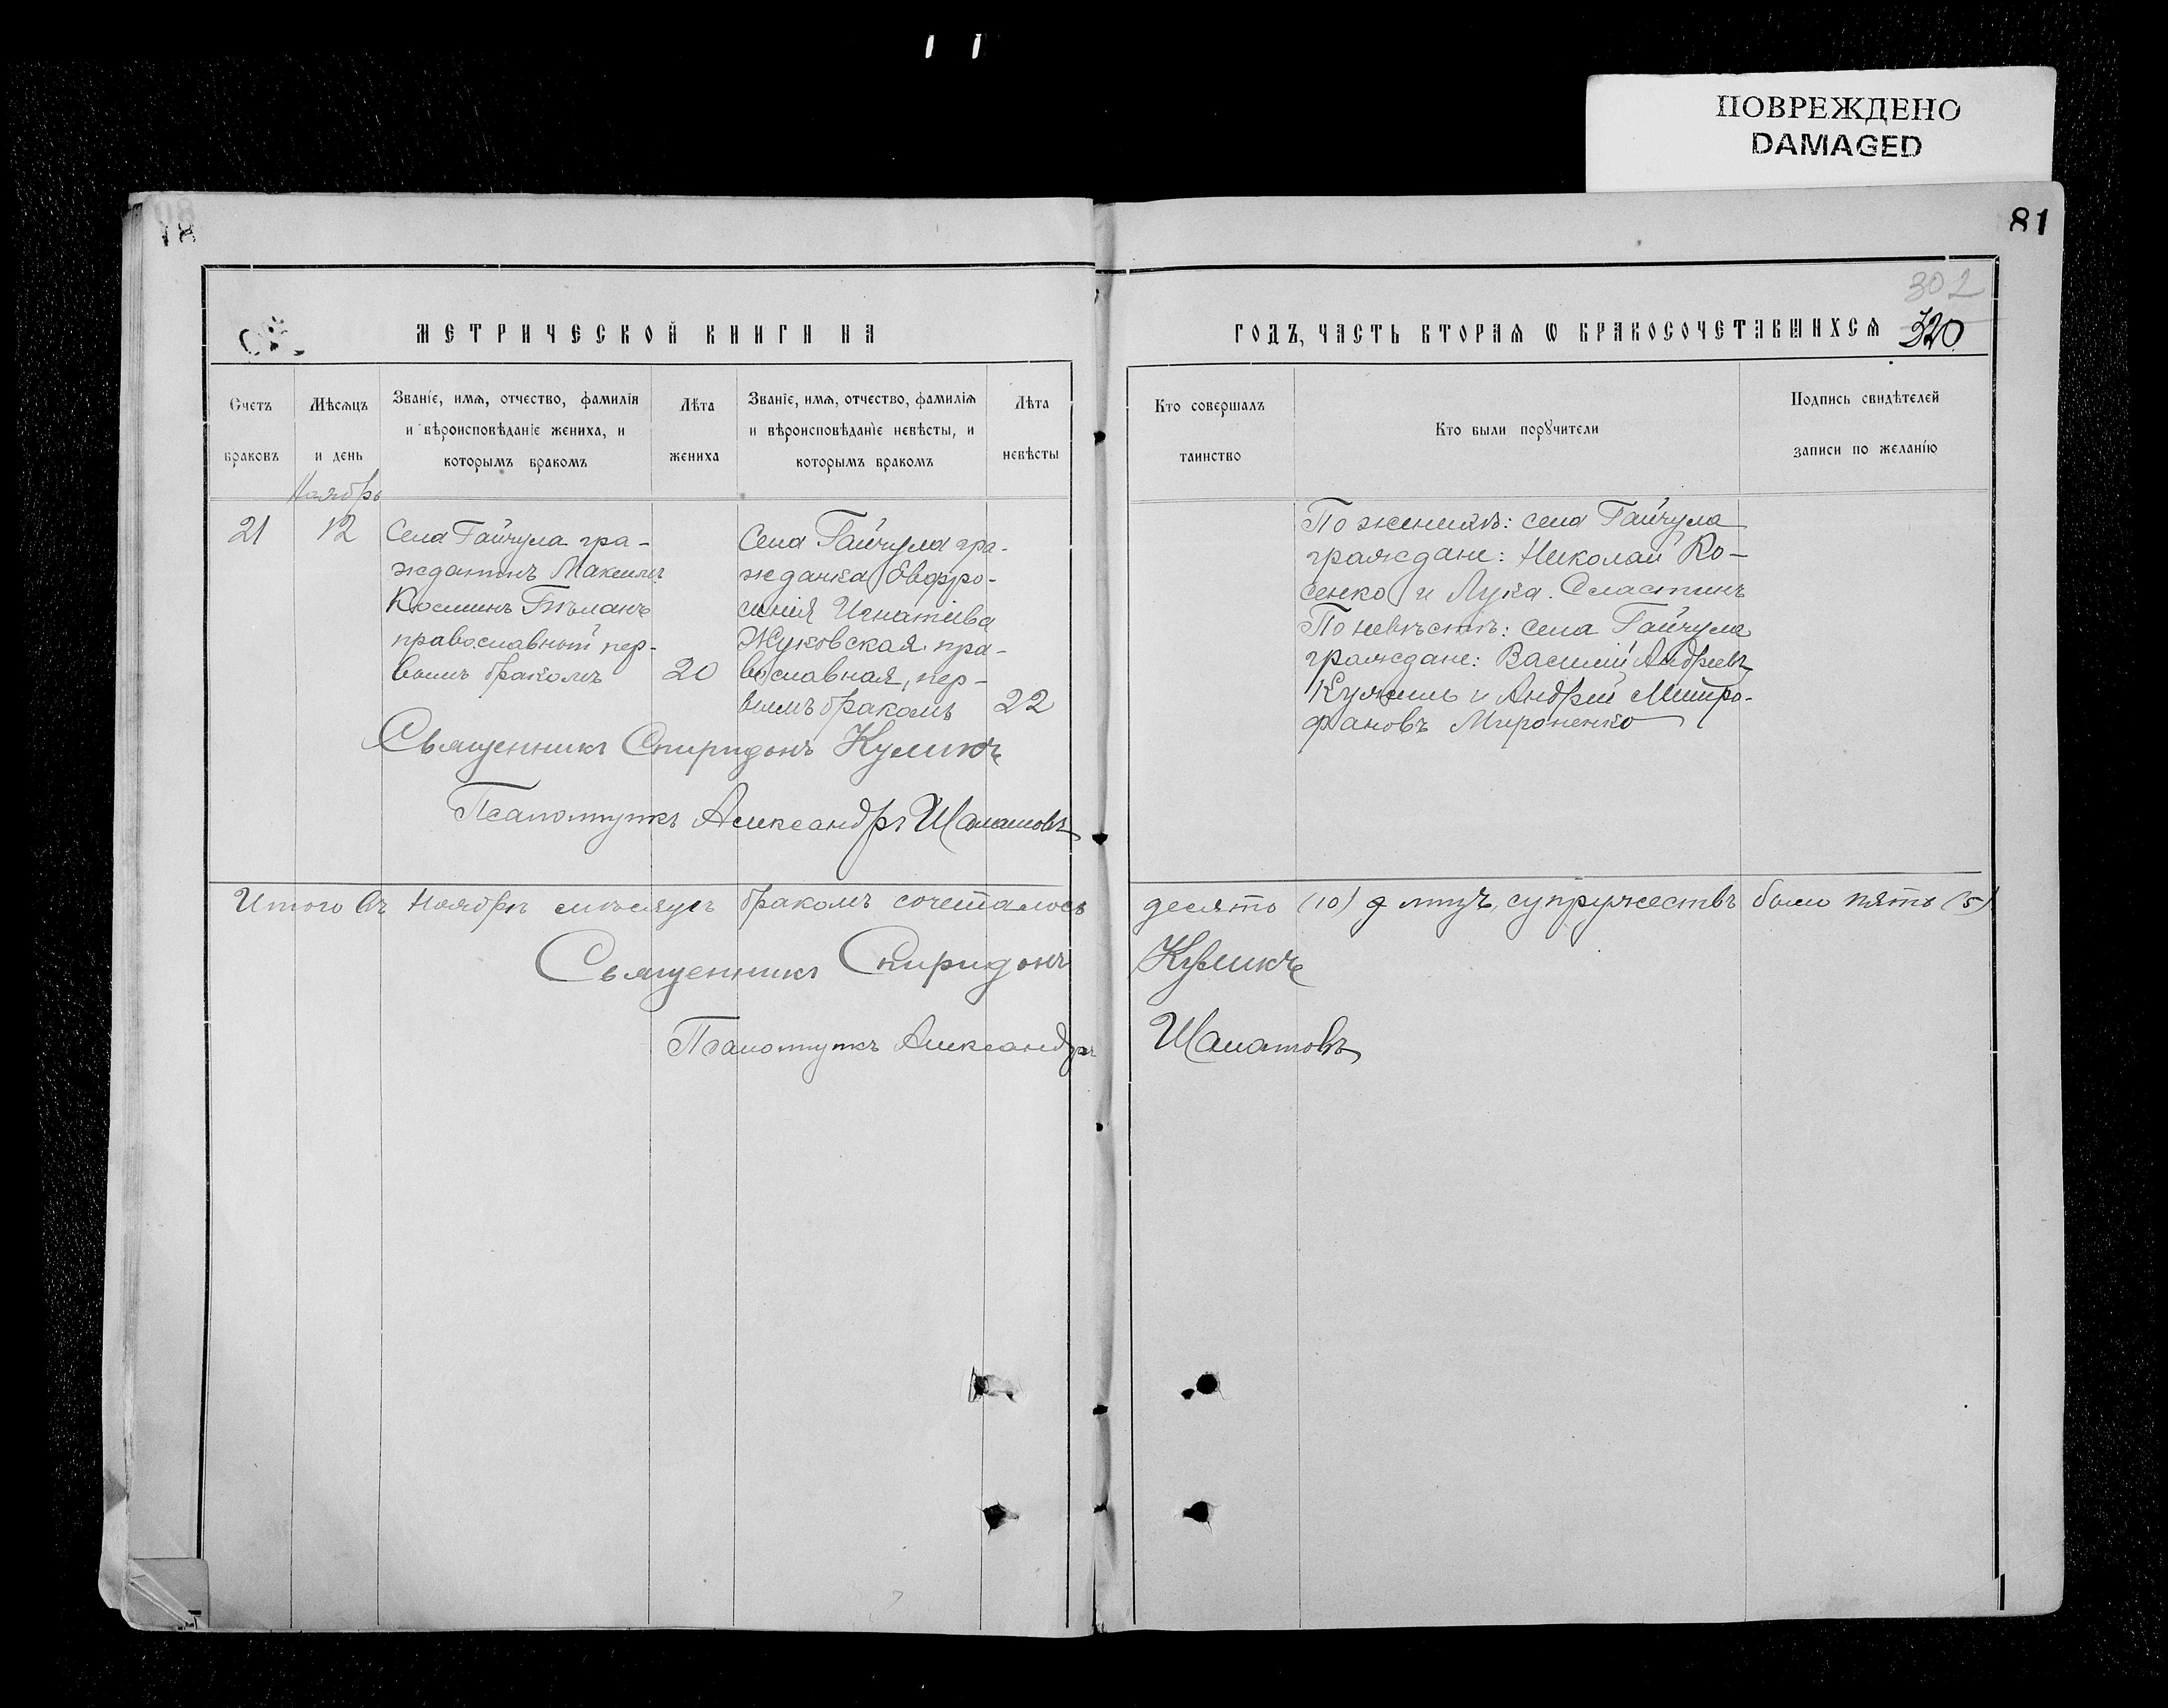 ПОВРЕЖДЕНО
DAMAGED
81
302
320
МЕТРИЧЕСКОЙ КНИГИ НА
ГОДЪ, ЧАСТЬ ВТОРАЯ Ѡ БРАКОСОЧЕТАВШИХСЯ
Счетъ браковъ
Мѣсяцъ и день
Званіе, имя, отчество, фамилія и вѣроисповѣданіе жениха, и которымъ бракомъ
Лѣта жениха
Званіе, имя, отчество, фамилія и вѣроисповѣданіе невѣсты, и которымъ бракомъ
Лѣта невѣсты
Кто совершалъ таинство
Кто были поручители
Подпись свидѣтелей записи по желанію
Ноябрь
21
12
Села Гайчула гра-
жданинъ Максимъ
Косминъ Бѣланъ
православный пер-
вымъ бракомъ
20
Села Гайчула гра-
жданка Евфро-
синія Игнатіева
Жуковская, пра-
вославная, пер-
вымъ бракомъ
22
По женихѣ: села Гайчула
граждане: Николай Ко-
сенко и Лука Сластинъ
По невѣстѣ: села Гайчула
граждане: Василій Андреевъ
и Андрей Митро-
фановъ Мироненко
Священникъ Спиридонъ Куликъ
Псаломщикъ Александръ Шаматовъ
Итого въ Ноябрѣ мѣсяцѣ бракомъ сочеталось десять (10) лицъ, супружествъ было пять (5)
Священникъ Спиридонъ Куликъ
Псаломщикъ Александръ Шаматовъ